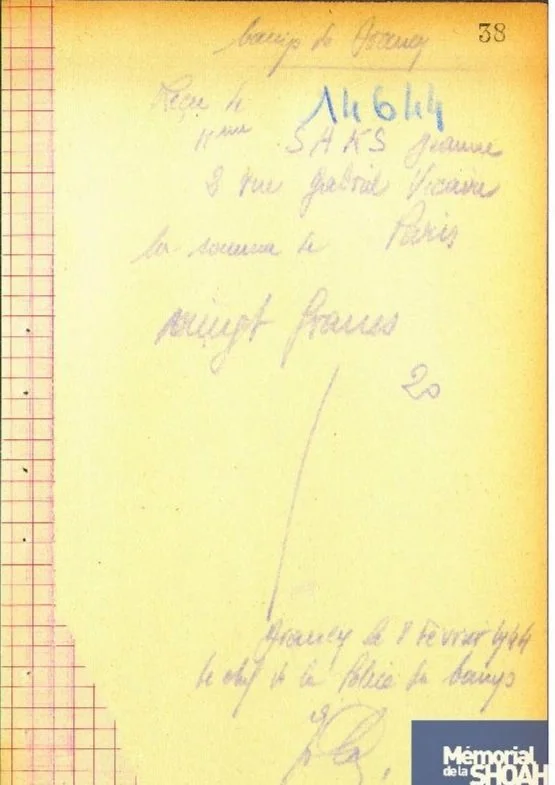 38
Camp de Drancy
Reçu de 14644
Mme SAKS Jeanne
8 rue Gabriel Vicaire
la somme de Paris
vingt francs
20
Drancy le 8 Février 1944
le chef de la Police du Camp
Mémorial
de la SHOAH